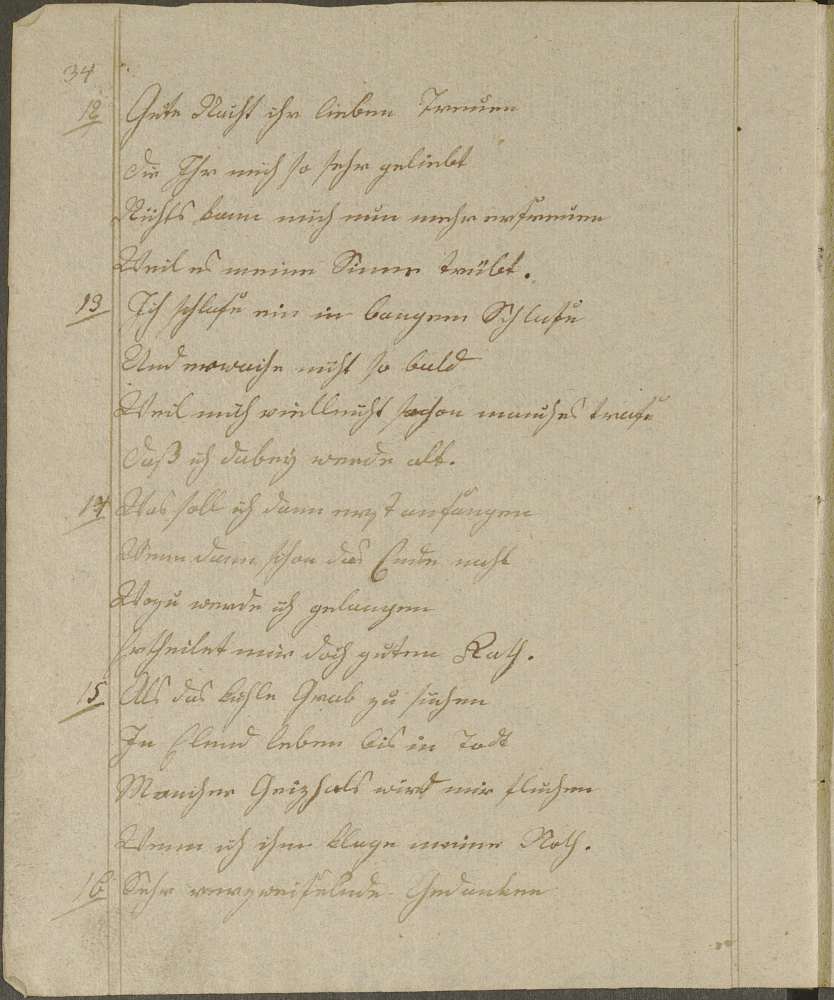 34
12 Gute Nacht ihr lieben Treuen
die Ihr mich so sehr geliebt
Nichts kann mich nun mehr erfreuen
Weil es meine Sinne trübt.
13 Ich schlafe ein in bangem Schlafe
Und erwache nicht so bald
Weil mich vielleicht schon manches trafe
daß ich dabey werde alt.
14 Was soll ich dann erst anfangen
Wenn dann schon das Ende naht
Wozu werde ich gelangen
Ertheilet mir doch guten Rath.
15 Als das kühle Grab zu suchen
In Elend leben bis in Todt
Mancher Geizhals wird mir fluchen
Wenn ich ihm klage meine Noth.
16 Sehr verzweifelnde Gedanken